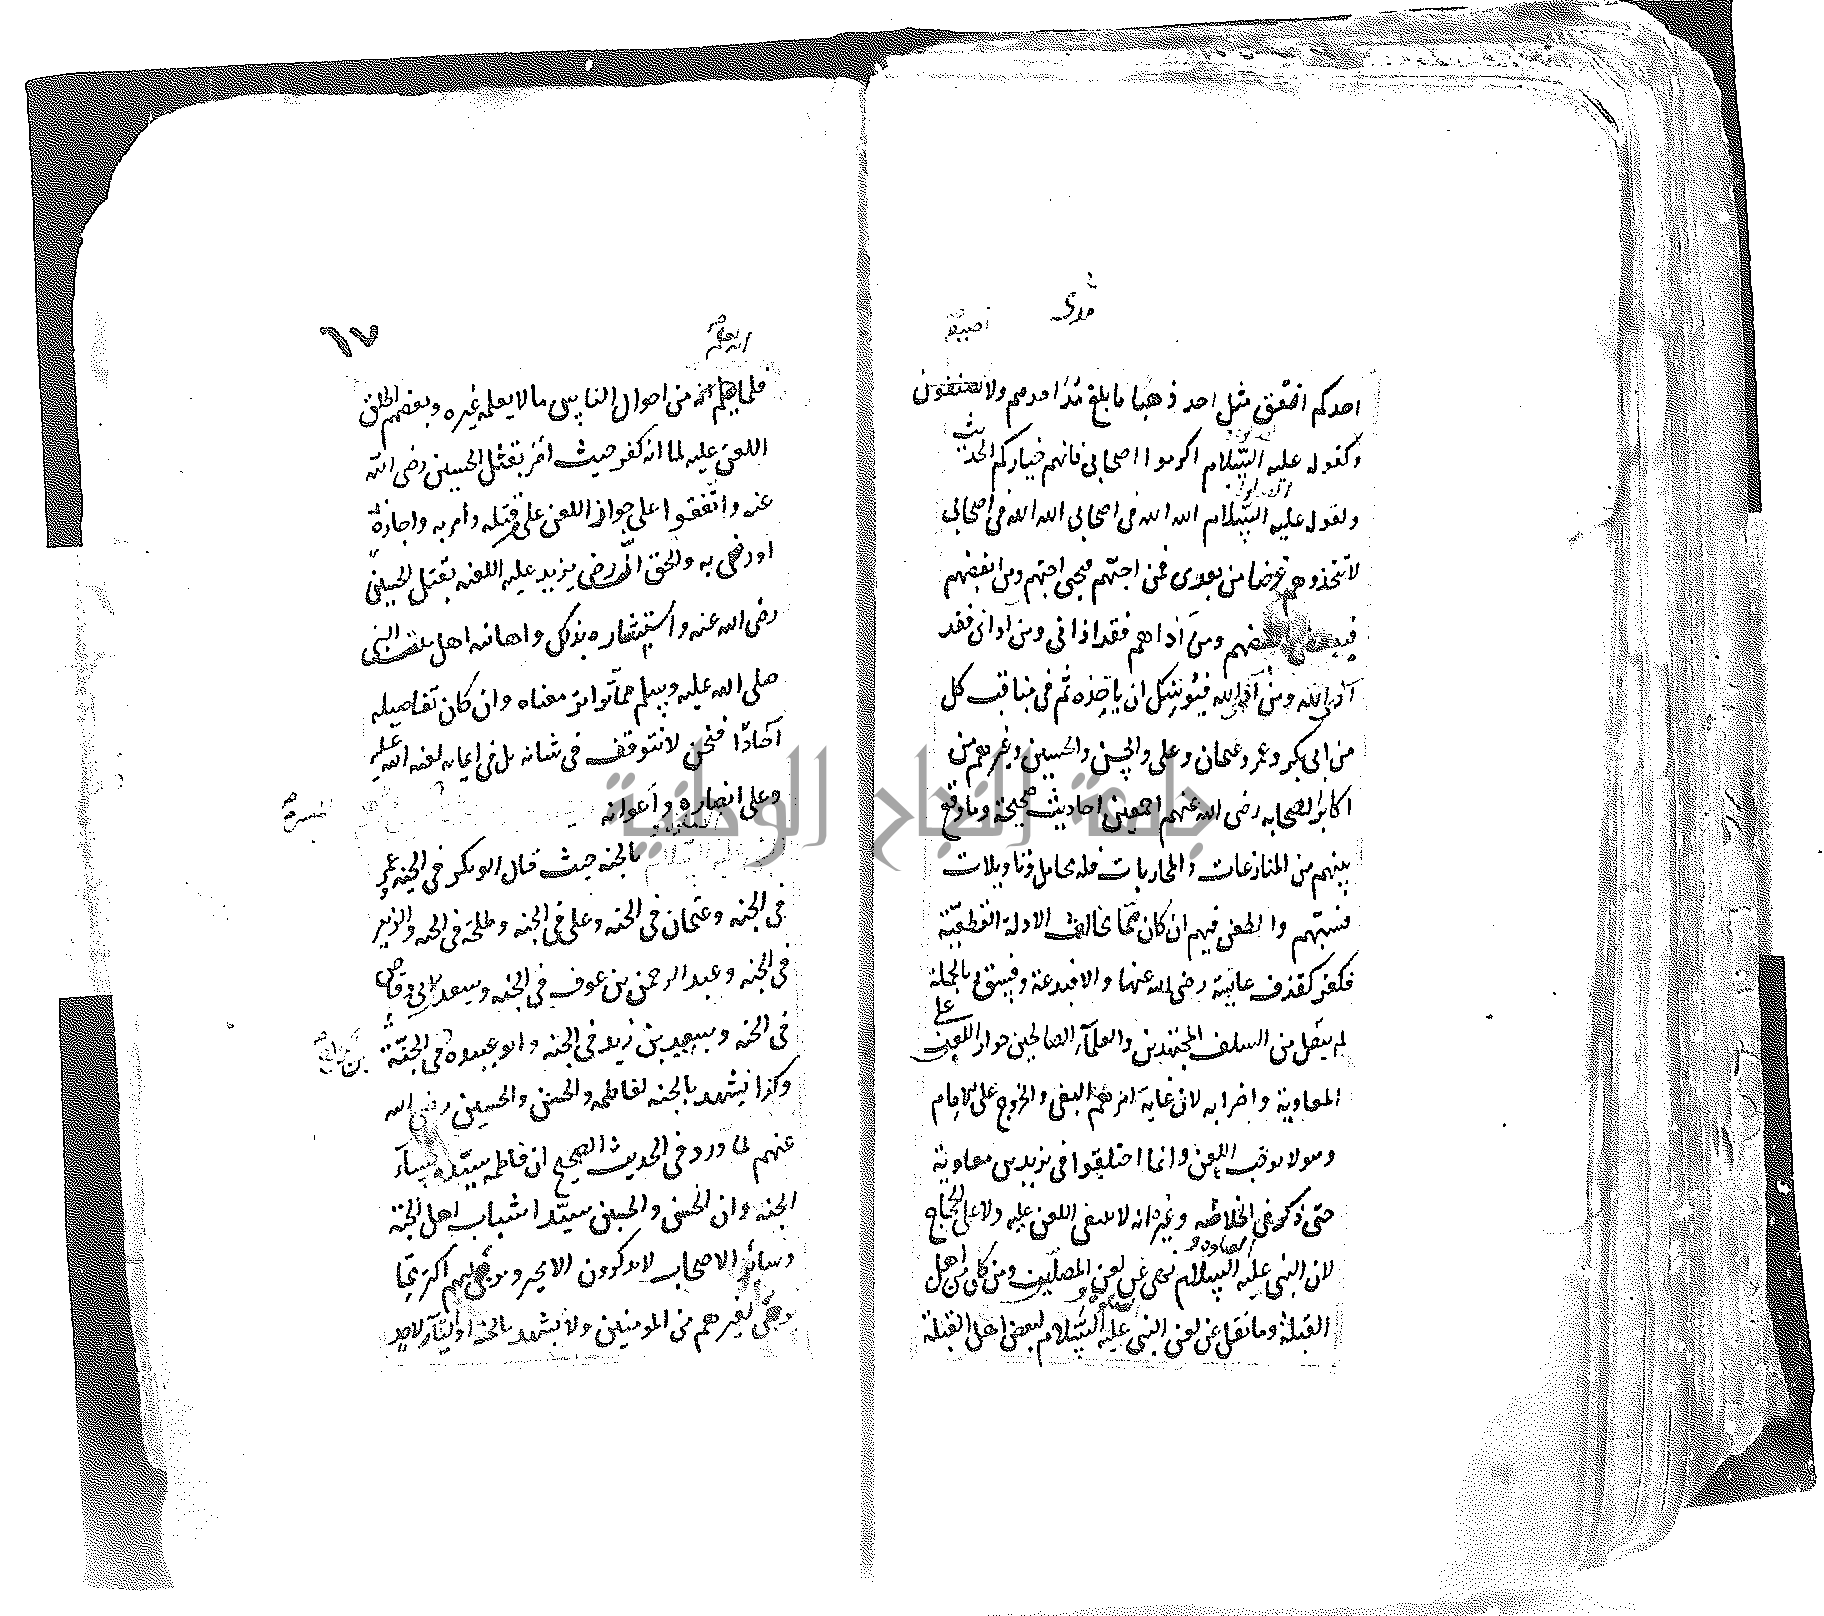 احدكم انفق مثل احد ذهبا ما بلغ مد احدهم ولا نصيفه
وكقوله عليه السلام اكرموا اصحابي فانهم خياركم الحديث
ولقوله عليه السلام الله الله في اصحابي الله الله في اصحابي
لا تتخذوهم غرضا من بعدى فمن احبهم فبحبى احبهم ومن ابغضهم
فببغضى ابغضهم ومن آذاهم فقد اذانى ومن آذانى فقد
آذى الله ومن آذى الله فيوشك ان ياخذه ثم فى مناقب كل
من ابى بكر وعمر وعثمان وعلى والحسن والحسين وغيرهم من
اكابر الصحابه رضى الله عنهم اجمعين احاديث صحيحة وما وقع
بينهم من المنازعات والمحاربات فله محامل وتاويلات
فسبهم والطعن فيهم ان كان مما يخالف الادلة القطعية
فكفر كقذف عايشة رضى الله عنها والا فبدعة وفسق وبالجملة
لم ينقل من السلف المجتهدين والعلمآء الصالحين جواز اللعن على
المعاوية واحزابه لان غاية امرهم البغى والخروج على الامام
وهو لا يوجب اللعن وانما اختلفوا فى يزيد بن معاوية
حتى ذكر فى الخلاصه وغيره انه لا ينبغى اللعن عليه ولا على الحجاج
لان النبى عليه الصلوة و السلام نهى عن لعن المصلين ومن كان من اهل
القبلة وما نقل عن لعن النبى عليه السلام لبعض اهل القبلة
١٧
فلما يعلم انه من احوال الناس ما لا يعلمه غيره وبعضهم اطلق
اللعن عليه لما انه كفر حيث امر بقتل الحسين رضى الله
عنه واتفقوا على جواز اللعن على قتله وامر به واجازه
او رضى به والحق ان رضى يزيد عليه اللعنه بقتل الحسين
رضى الله عنه واستبشاره بذلك واهانه اهل بيت النبى
صلى الله عليه وسلم مما تواتر معناه وان كان تفاصيله
آحادا فنحن لا نتوقف فى شانه بل فى ايمانه لعنه الله عليه
وعلى انصاره واعوانه
بالجنه حيث قال ابو بكر فى الجنه عمر
فى الجنه وعثمان فى الجنه وعلى فى الجنه وطلحة فى الجنه والزبير
فى الجنه وعبد الرحمن بن عوف فى الجنه وسعد بن ابى وقاص
فى الجنه وسعيد بن زيد فى الجنه وابو عبيده فى الجنة
وكذا نشهد بالجنه لفاطمه والحسن والحسين رضى الله
عنهم لما ورد فى الحديث الصحيح ان فاطمه سيدة نسآء
الجنه وان الحسن والحسين سيدا شباب اهل الجنة
وسائر الاصحاب لا يذكرون الا بخير ويرجى لهم اكثر مما
يرجى لغيرهم من المومنين ولا نشهد بالجنه او النار لاحد
جامعة النجاح الوطنية